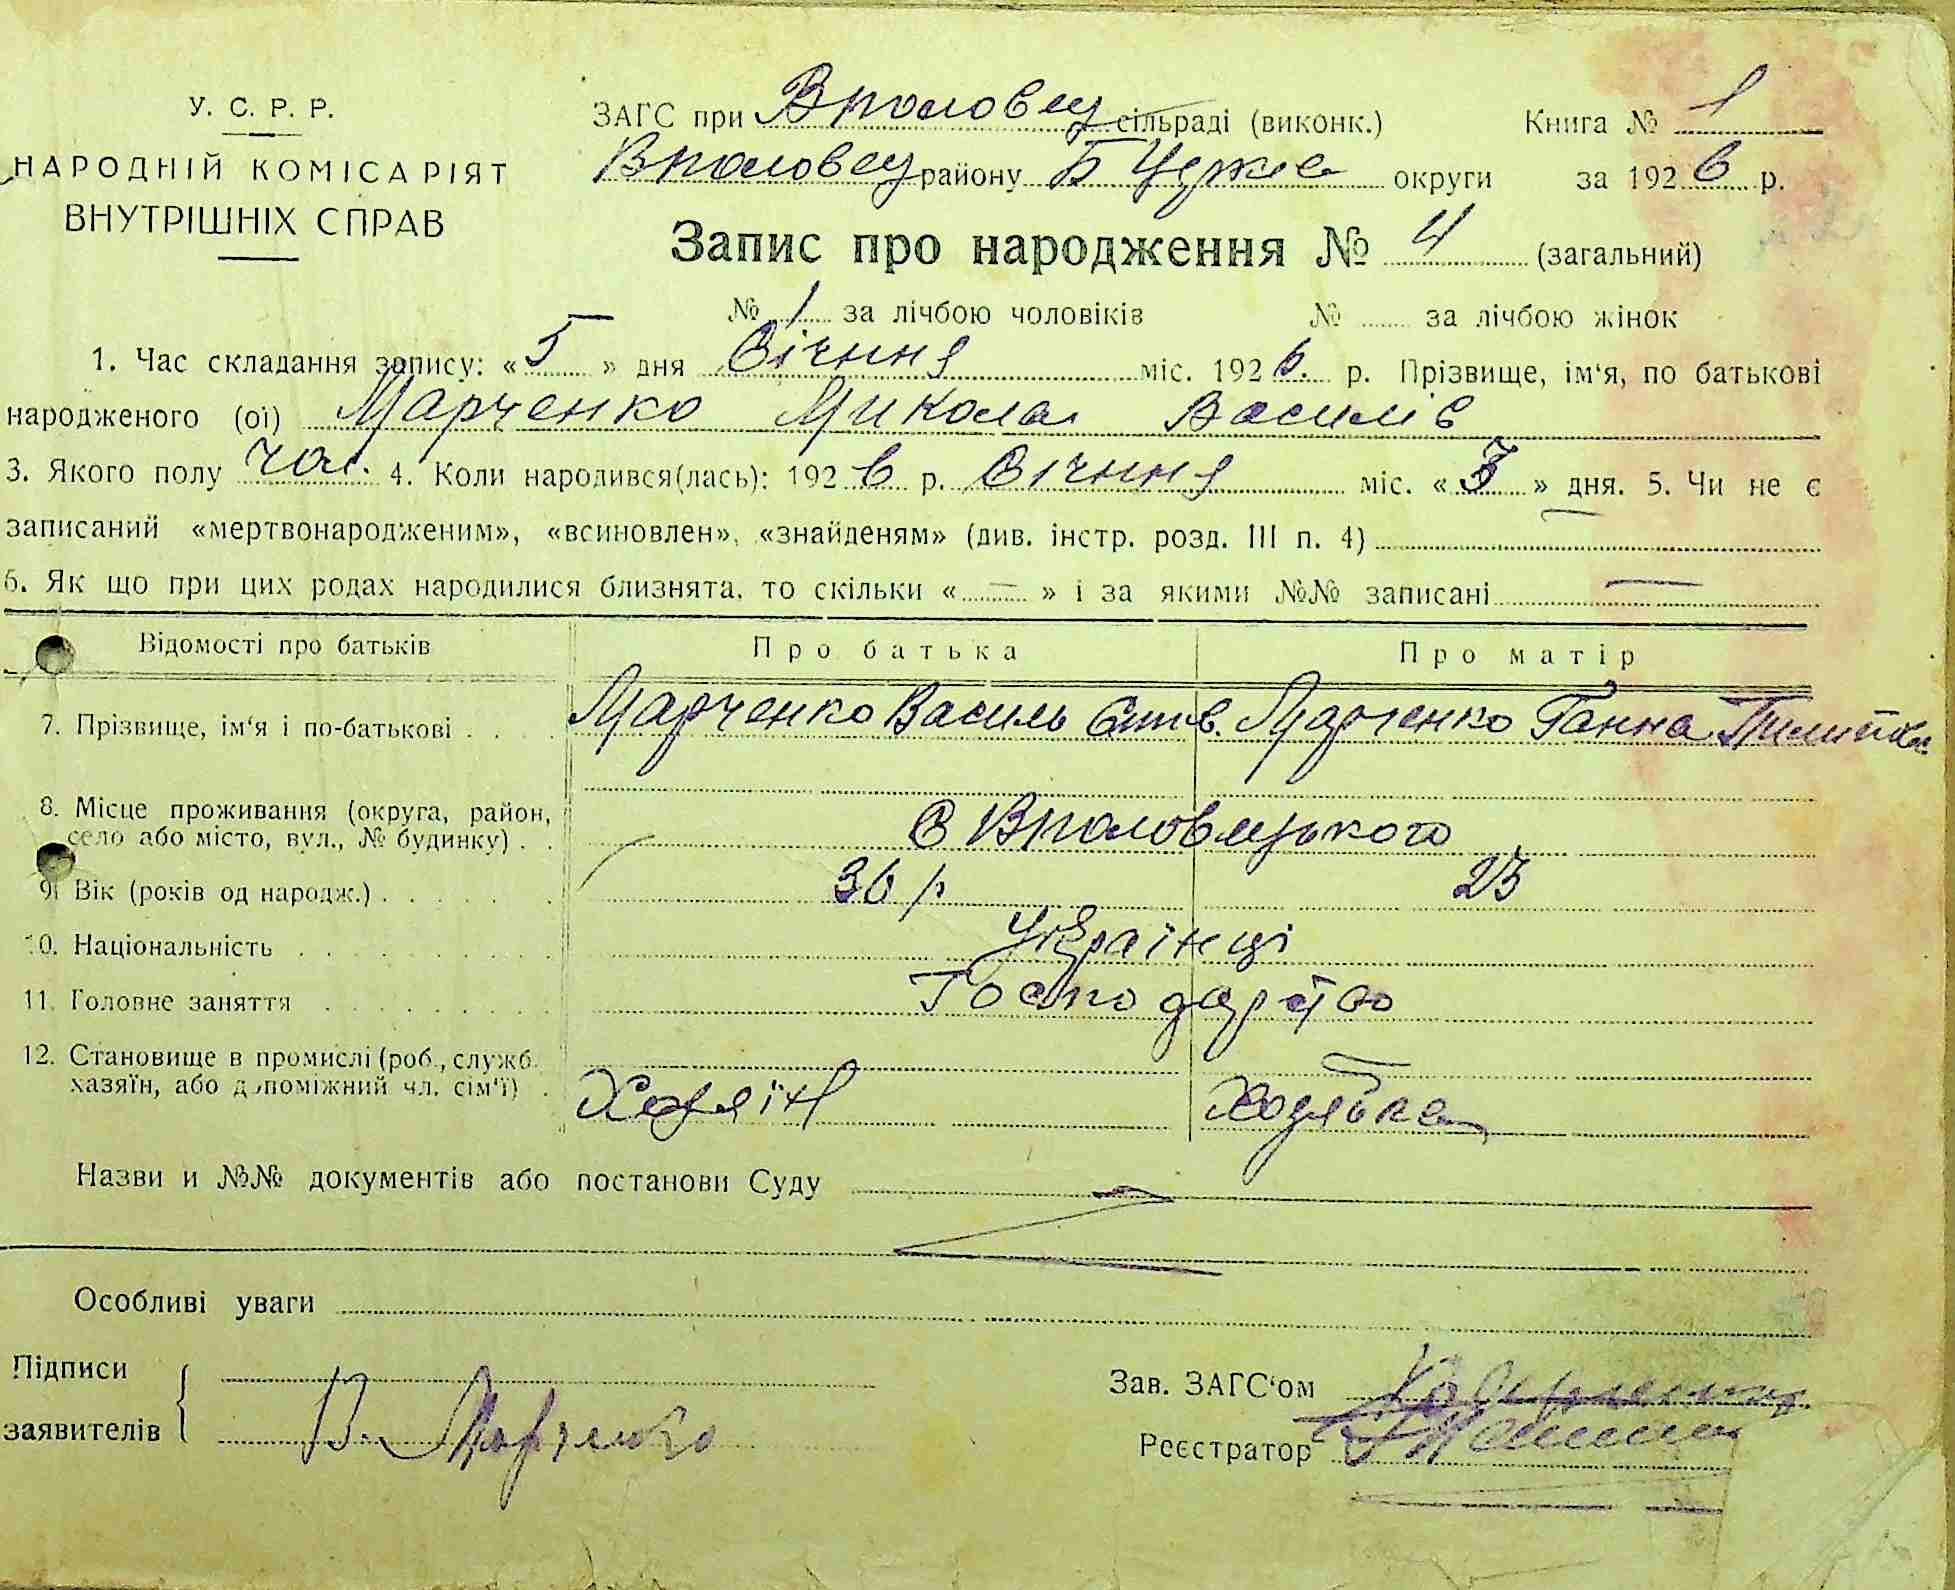 У. С. Р. Р.
НАРОДНІЙ КОМІСАРІЯТ
ВНУТРІШНІХ СПРАВ
ЗАГС при Вполовец сільраді (виконк.) Книга № 1
Вполовец району Б Церкс округи за 1926 р.
Запис про народження № 4 (загальний)
№ 1 за лічбою чоловіків № за лічбою жінок
1. Час складання запису: « 5 » дня Січння міс. 1926. р. Прізвище, ім‘я, по батькові
народженого (ої) Марченко Микола Василів
3. Якого полу чол. 4. Коли народився(лась): 1926 р. Січння міс. « 3 » дня. 5. Чи не є
записаний «мертвонародженим», «всиновлен», «знайденям» (див. інстр. розд. III п. 4)
6. Як що при цих родах народилися близнята, то скільки « — » і за якими №№ записані —
Відомості про батьків Про батька Про матір
7. Прізвище, ім‘я і по-батькові Марченко Василь Марченко Ганна
8. Місце проживання (округа, район,
село або місто, вул., № будинку) С Вполовецького
9. Вік (років од народж.) 36 р 23
10. Національність Українці
11. Головне заняття Господарство
12. Становище в промислі (роб., служб.
хазяїн, або допоміжний чл. сім‘ї) Хазяїн Хозяйка
Назви и №№ документів або постанови Суду
Особливі уваги
Підписи
заявителів В. Марченко
Зав. ЗАГС‘ом
Реєстратор